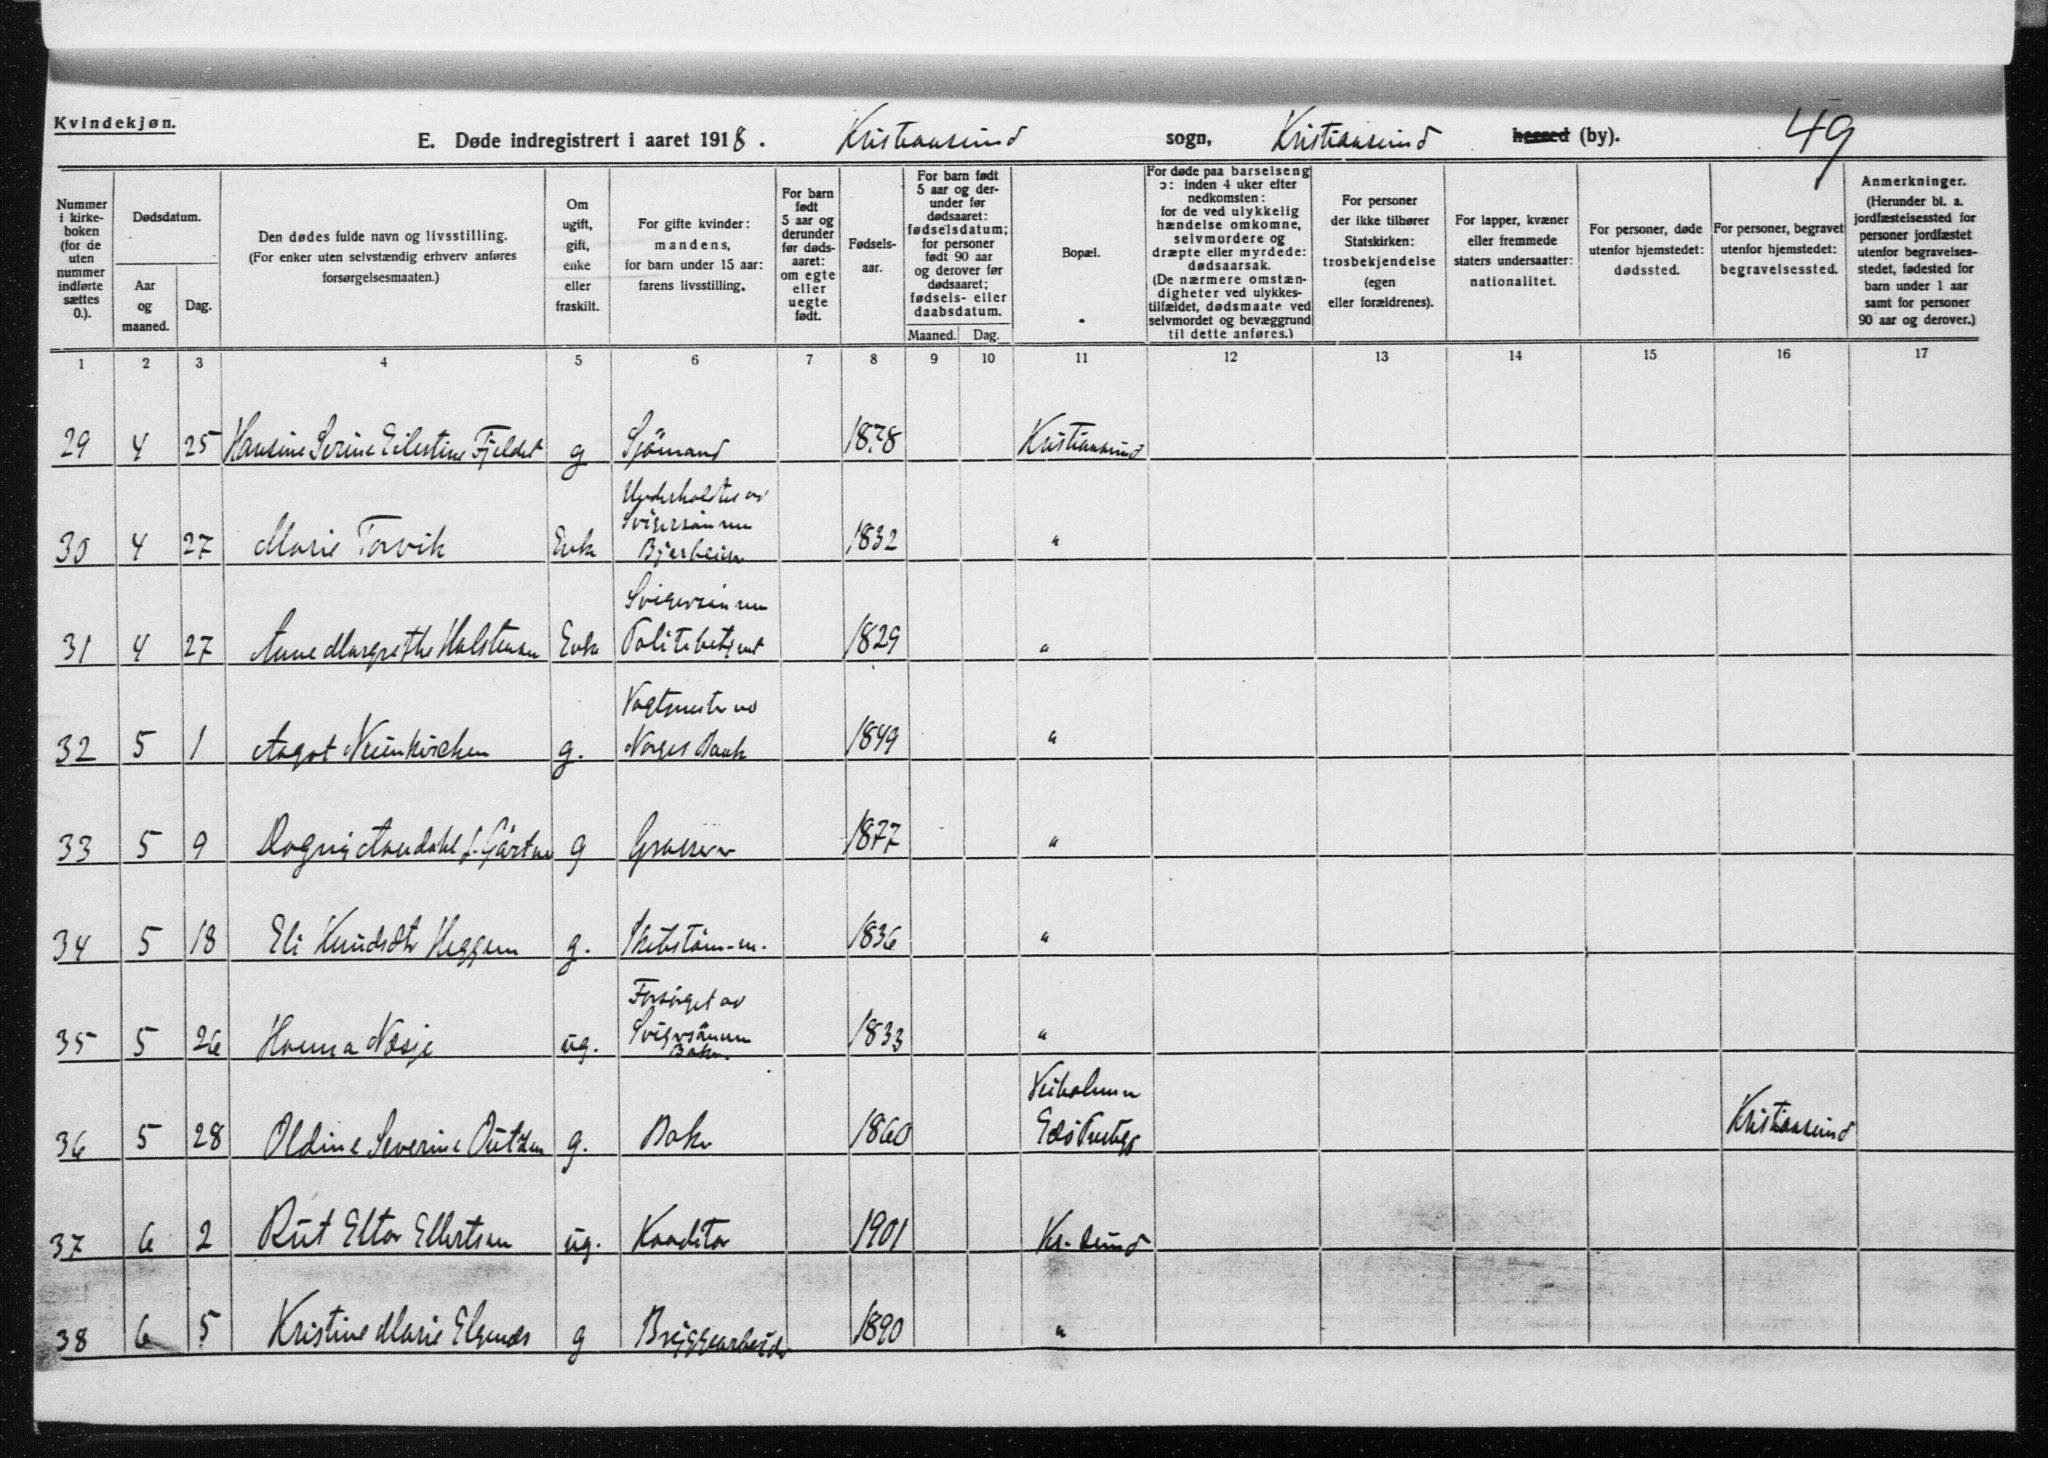 Kvindekjøn.
E. Døde indregistrert i aaret 1918. Kristiansund sogn, Kristiansund herred (by). 49
Nummer i kirkeboken (for de uten nummer indførte sættes 0.).
Dødsdatum.
Aar og maaned.
Dag.
Den dødes fulde navn og livsstilling.
(For enker uten selvstændig erhverv anføres forsørgelsesmaaten.)
Om ugift, gift, enke eller fraskilt.
For gifte kvinder: mandens, for barn under 15 aar: farens livsstilling.
For barn født 5 aar og derunder før dødsaaret: om egte eller uegte født.
Fødselsaar.
For barn født 5 aar og derunder før dødsaaret: fødselsdatum; for personer født 90 aar og derover før dødsaaret; fødsels- eller daabsdatum.
Maaned.
Dag.
Bopæl.
For døde paa barselseng ɔ: inden 4 uker efter nedkomsten: for de ved ulykkelig hændelse omkomne, selvmordere og dræpte eller myrdede: dødsaarsak.
(De nærmere omstændigheter ved ulykkestilfældet, dødsmaate ved selvmordet og bevæggrund til dette anføres.)
For personer der ikke tilhører Statskirken: trosbekjendelse (egen eller forældrenes).
For lapper, kvæner eller fremmede staters undersaatter: nationalitet.
For personer, døde utenfor hjemstedet: dødssted.
For personer, begravet utenfor hjemstedet: begravelsessted.
Anmerkninger. (Herunder bl. a. jordfæstelsessted for personer jordfæstet utenfor begravelsesstedet, fødested for barn under 1 aar samt for personer 90 aar og derover.)
1 2 3 4 5 6 7 8 9 10 11 12 13 14 15 16 17
29 4 25 Hansine Serine Eilertine Fjeldet g Sjömand 1878 Kristiansund
30 4 27 Marie Torvik Enke Underholdtes av Svigersönnen 1832 "
31 4 27 Anne Margrethe Halstensen Enke Svigersönnen Politibetjent 1829 "
32 5 1 Aagot Neunkirchen g. Vagtmester v Norges Bank 1849 "
33 5 9 Dagny Aandahl f. Gärtner g Grosserer 1877 "
34 5 18 Eli Knudsdtr Heggem g. Skibstöm.-m. 1836 "
35 5 26 Hanna Næsje ug. Forsörget av Svigersönnen Baker. 1833 "
36 5 28 Oldine Severine g. Baker 1860 Veiholmen Edö Prestegj Kristiansund
37 6 2 Rut Eltor Ellertsen ug. Konditor 1901 Kr.sund
38 6 5 Kristine Marie Elgenes g Bryggearbeider 1890 "